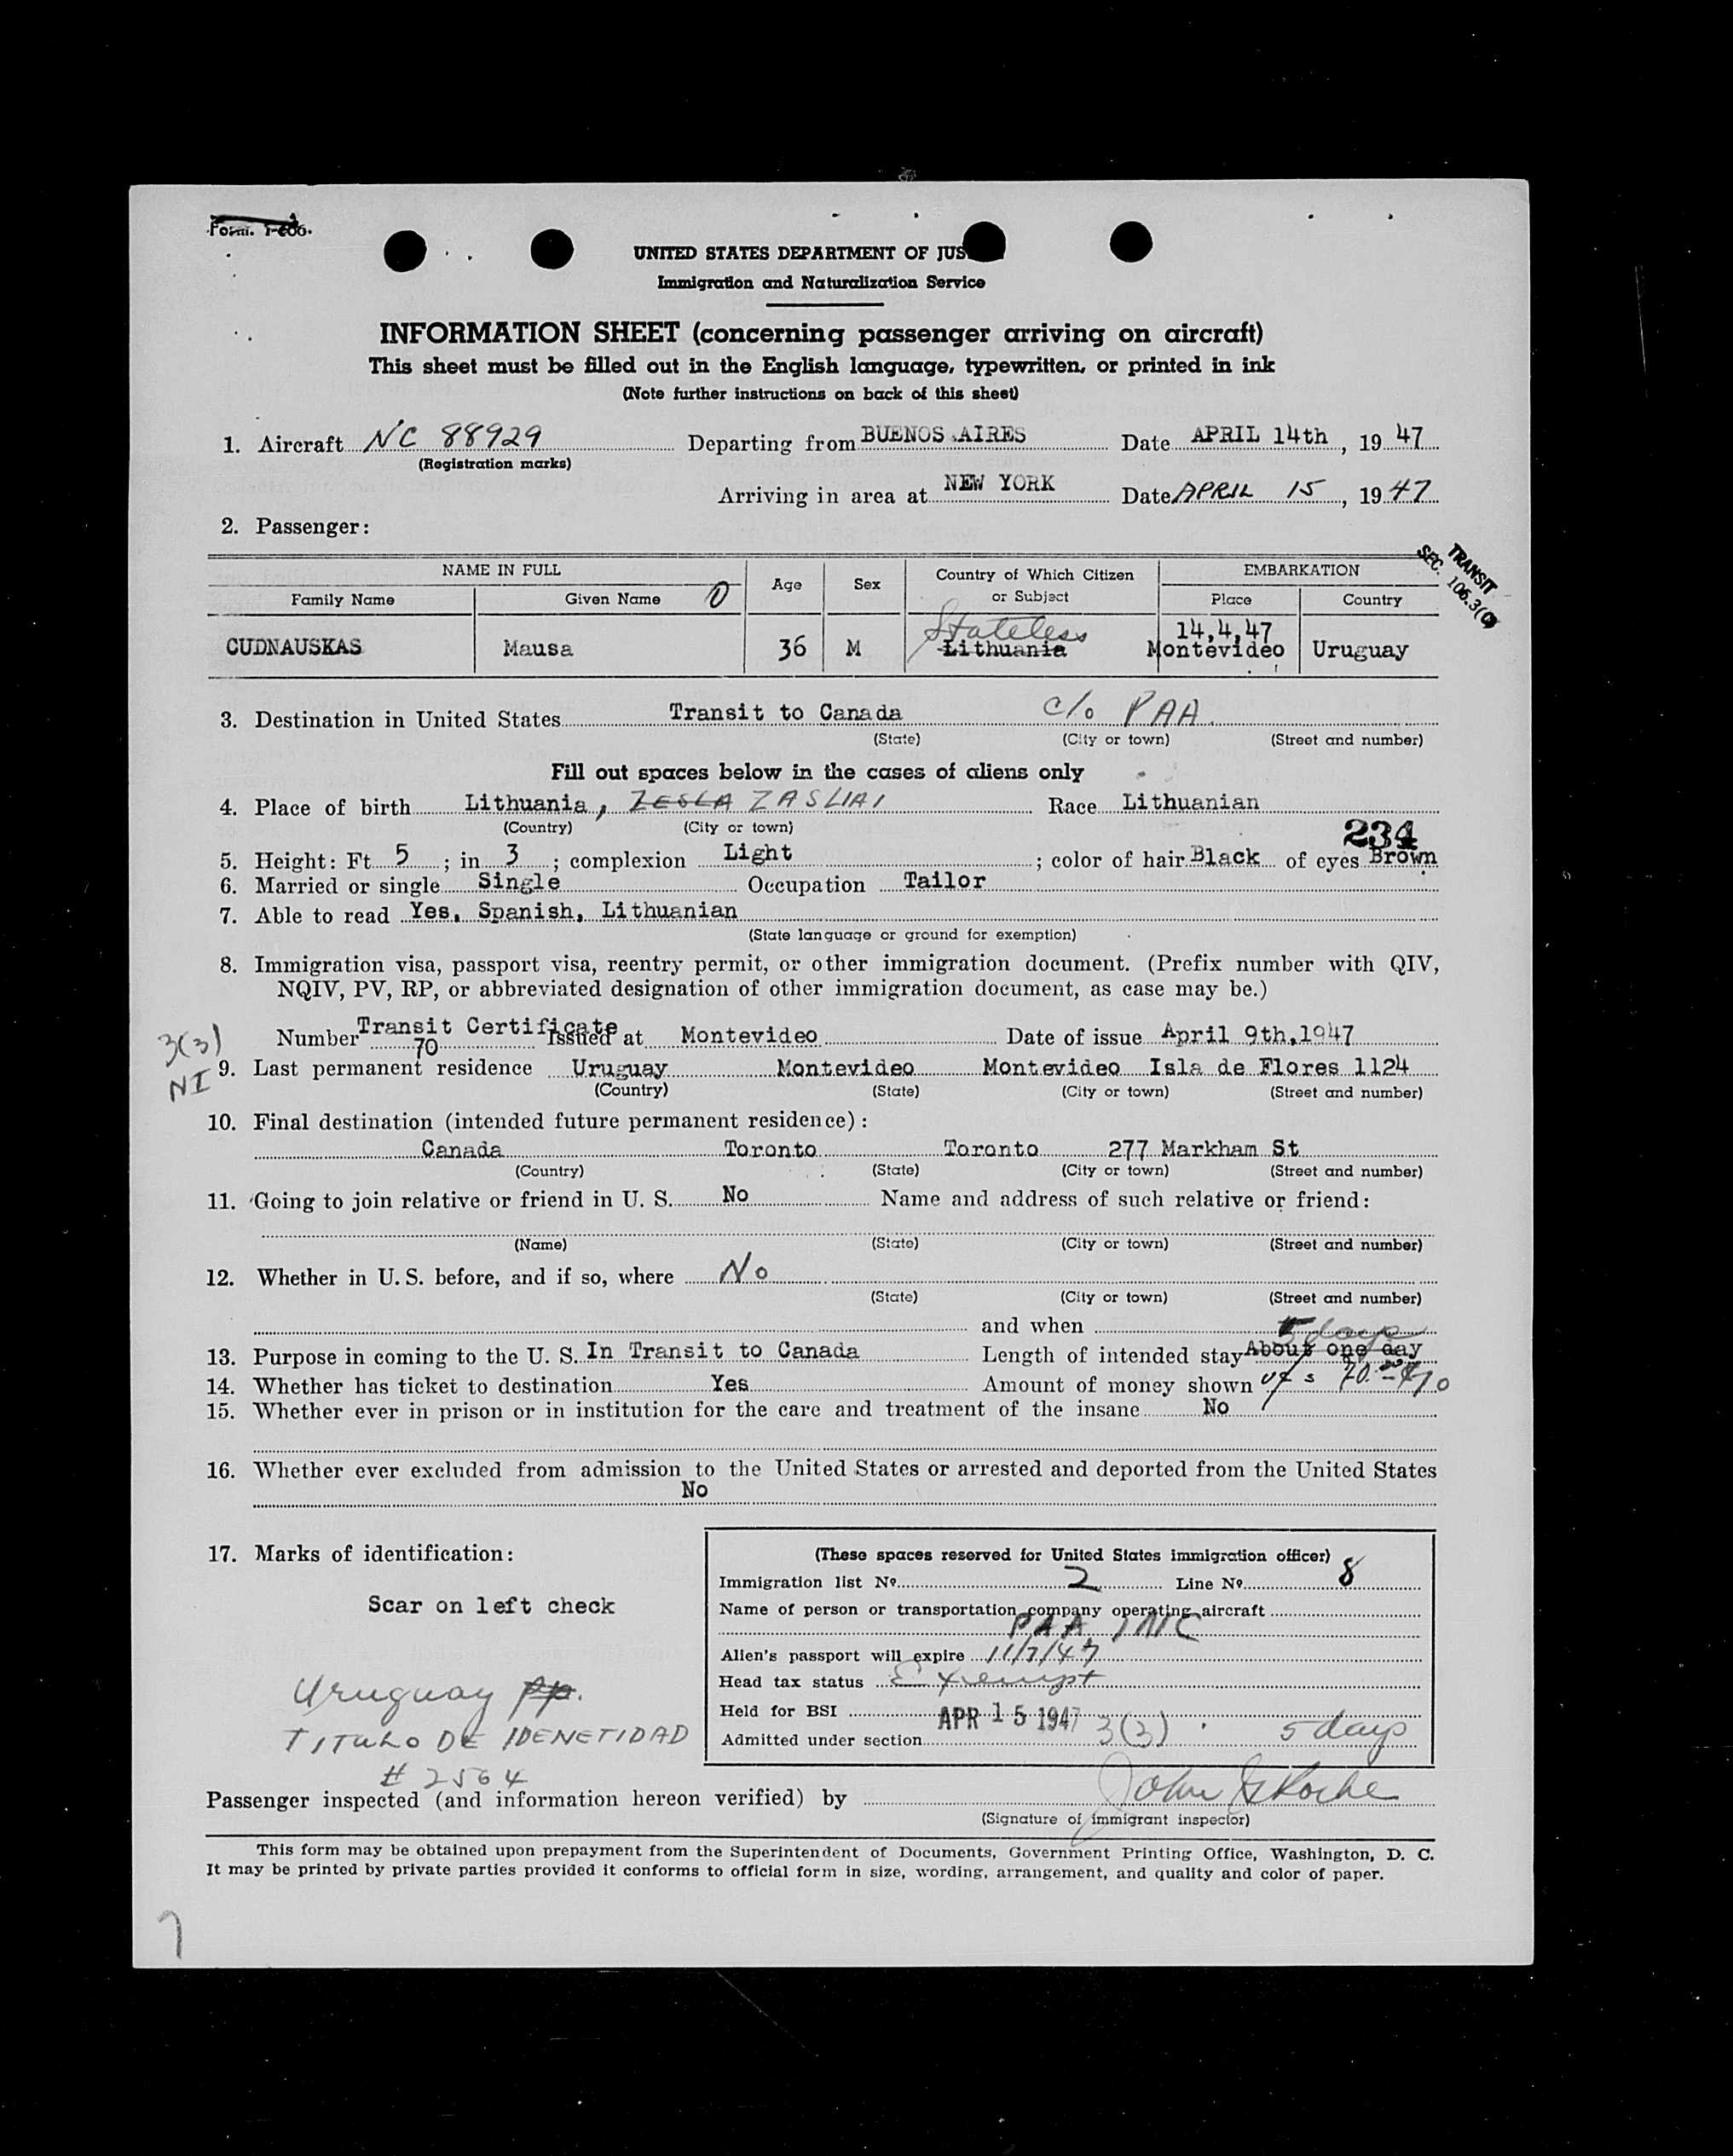 Form. I-466.
UNITED STATES DEPARTMENT OF JUS
Immigration and Naturalization Service
INFORMATION SHEET (concerning passenger arriving on aircraft)
This sheet must be filled out in the English language, typewritten, or printed in ink
(Note further instructions on back of this sheet)
1. Aircraft NC 88929 Departing from BUENOS AIRES Date APRIL 14th, 19 47
(Registration marks)
Arriving in area at NEW YORK Date APRIL 15, 19 47
2. Passenger:
TRANSIT
SEC. 106.3(c)
NAME IN FULL Age Sex Country of Which Citizen or Subject EMBARKATION
Family Name Given Name 0 Place Country
Stateless 14,4,47
CUDNAUSKAS Mausa 36 M Lithuania Montevideo Uruguay
3. Destination in United States Transit to Canada c/o PAA.
(State) (City or town) (Street and number)
Fill out spaces below in the cases of aliens only
4. Place of birth Lithuania, ZESLA ZASLIAI Race Lithuanian
(Country) (City or town)
234
5. Height: Ft 5; in 3; complexion Light; color of hair Black of eyes Brown
6. Married or single Single Occupation Tailor
7. Able to read Yes, Spanish, Lithuanian
(State language or ground for exemption)
8. Immigration visa, passport visa, reentry permit, or other immigration document. (Prefix number with QIV,
NQIV, PV, RP, or abbreviated designation of other immigration document, as case may be.)
3(3) Number Transit Certificate 70 Issued at Montevideo Date of issue April 9th, 1947
NI 9. Last permanent residence Uruguay Montevideo Montevideo Isla de Flores 1124
(Country) (State) (City or town) (Street and number)
10. Final destination (intended future permanent residence):
Canada Toronto Toronto 277 Markham St
(Country) (State) (City or town) (Street and number)
11. Going to join relative or friend in U. S. No Name and address of such relative or friend:
(Name) (State) (City or town) (Street and number)
12. Whether in U. S. before, and if so, where No
(State) (City or town) (Street and number)
and when
5 days
13. Purpose in coming to the U. S. In Transit to Canada Length of intended stay About one day
14. Whether has ticket to destination Yes Amount of money shown 70.00
15. Whether ever in prison or in institution for the care and treatment of the insane No
16. Whether ever excluded from admission to the United States or arrested and deported from the United States
No
17. Marks of identification:
Scar on left check
Uruguay pp.
TITULO DE IDENETIDAD
# 2564
(These spaces reserved for United States immigration officer)
Immigration list No. 2 Line No. 8
Name of person or transportation company operating aircraft
PAA INC
Alien's passport will expire 11/7/47
Head tax status Exempt
Held for BSI
APR 15 1947
Admitted under section 3(3) 5 days
Passenger inspected (and information hereon verified) by John
(Signature of immigrant inspector)
This form may be obtained upon prepayment from the Superintendent of Documents, Government Printing Office, Washington, D. C.
It may be printed by private parties provided it conforms to official form in size, wording, arrangement, and quality and color of paper.
7